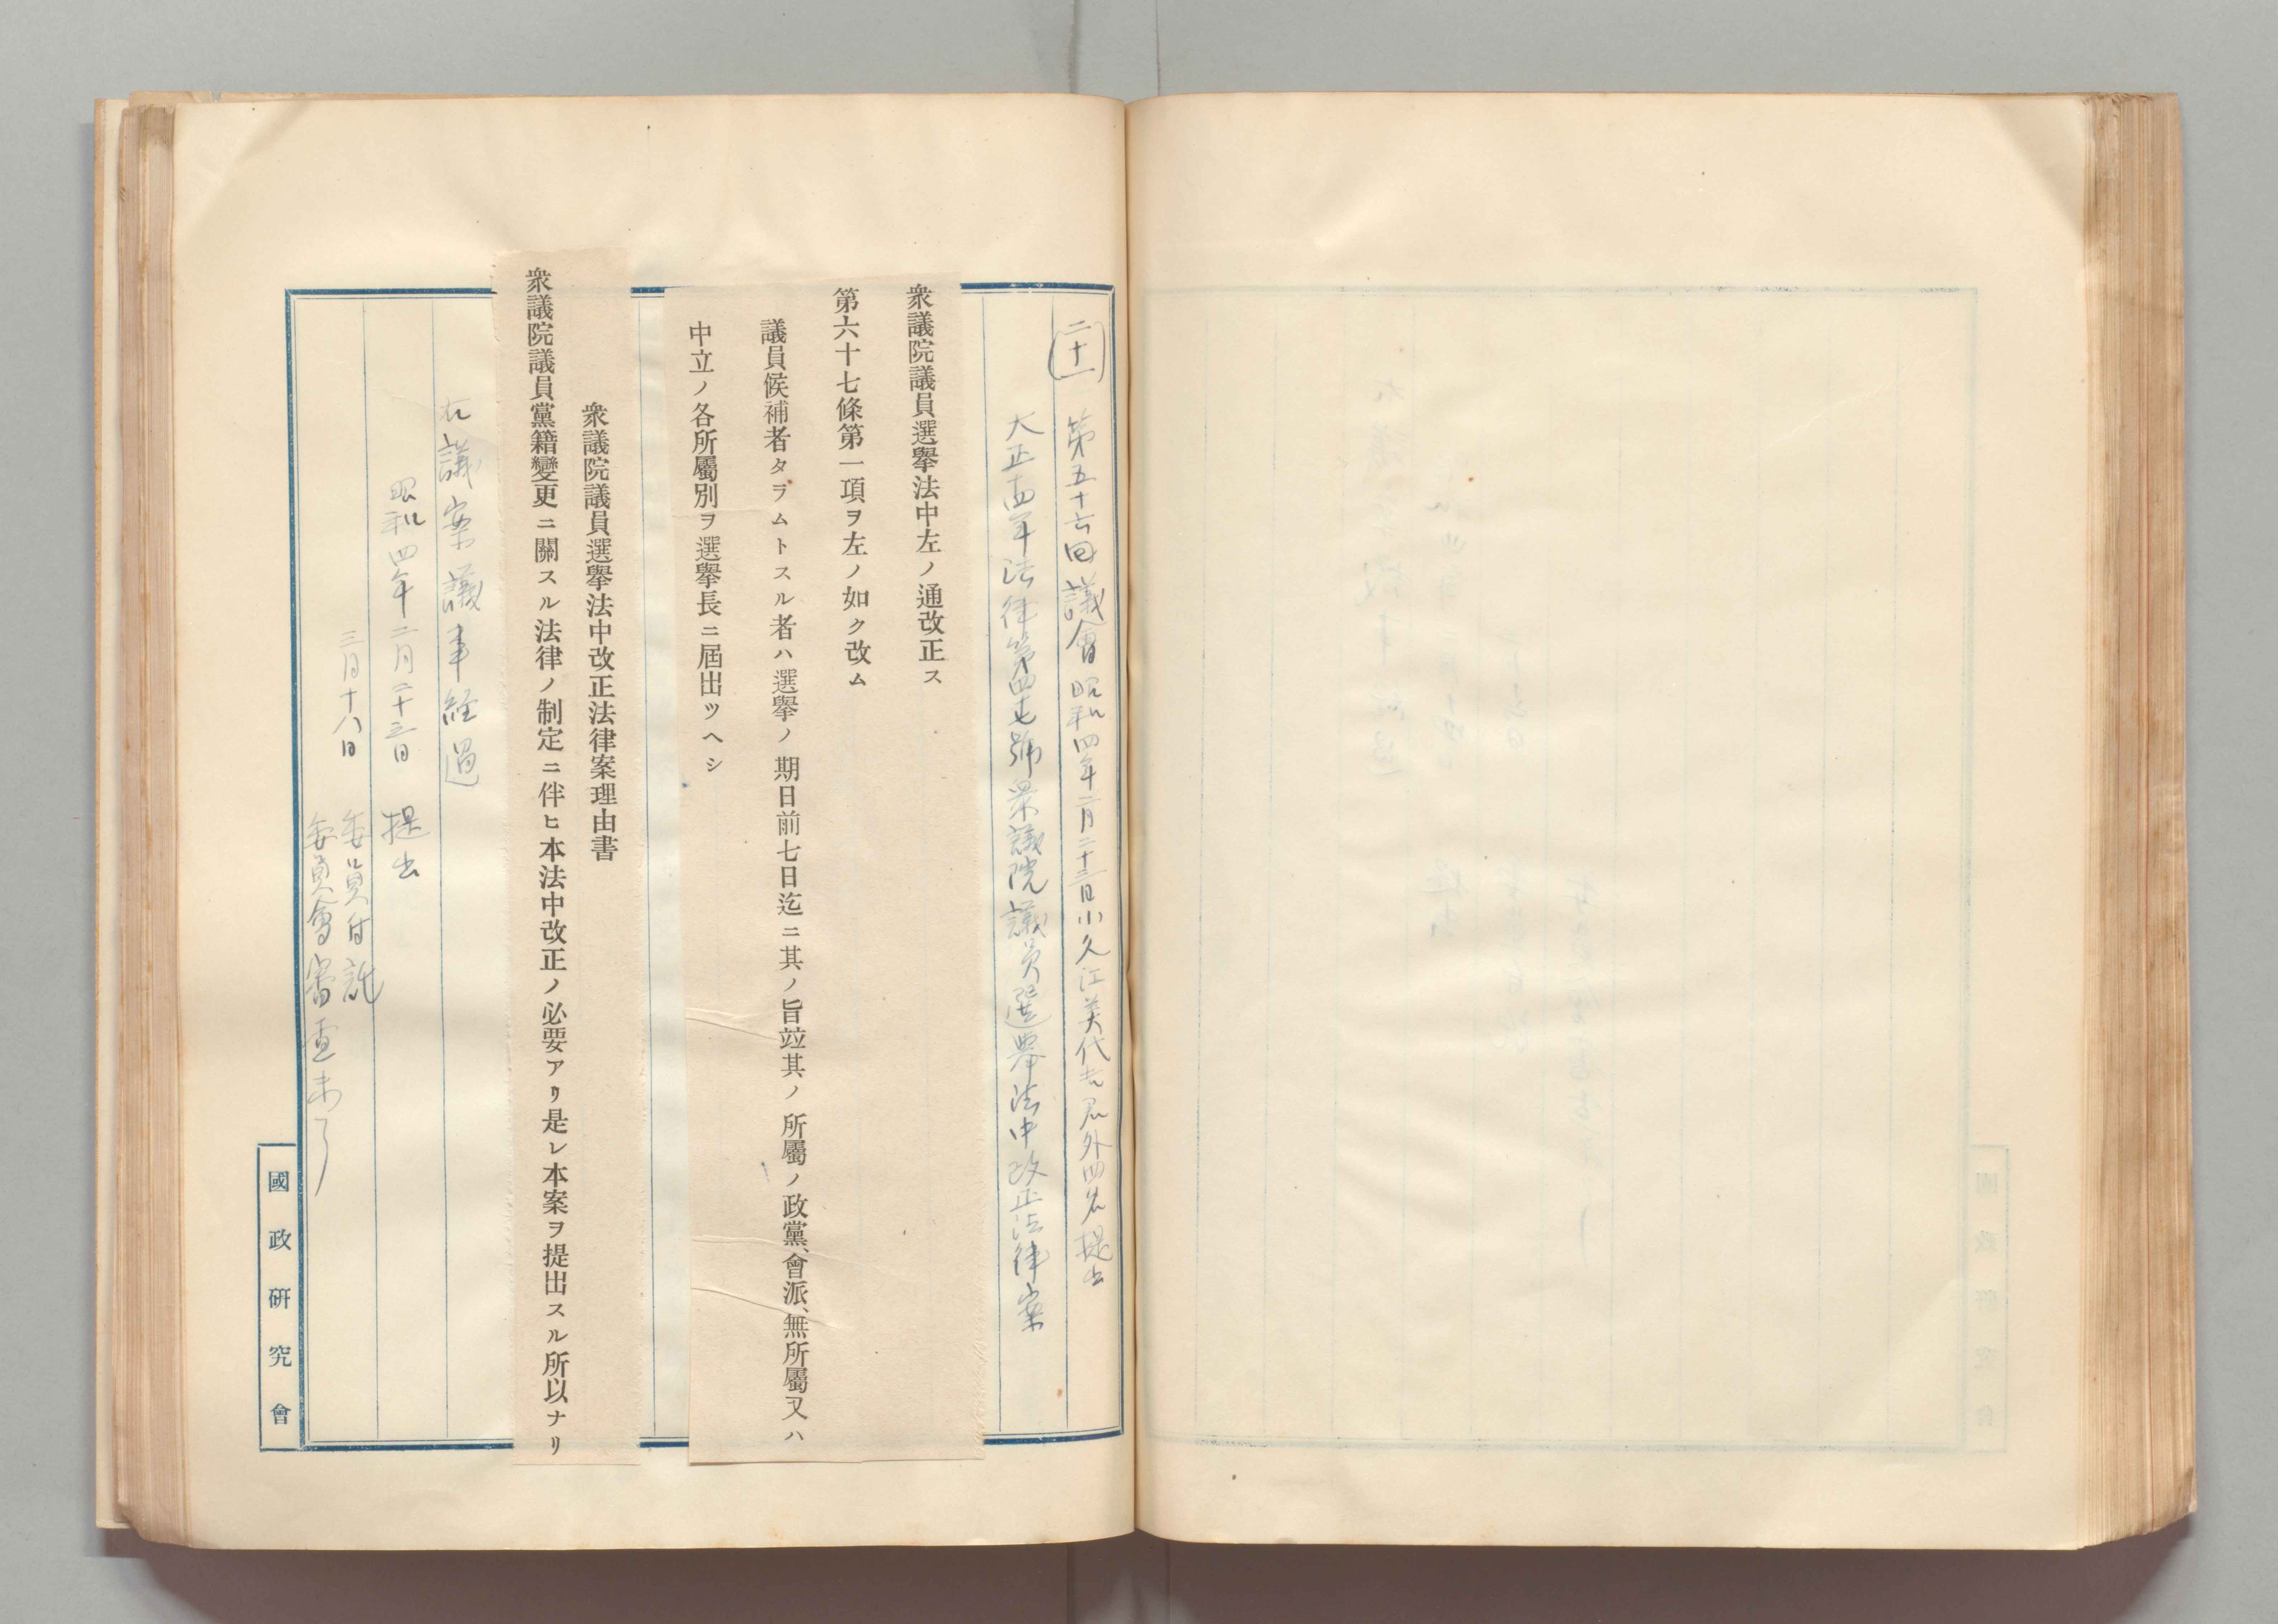 (二十一) 第五十六回議會昭和四年二月二十三日小久江美代吉君外四名提出
大正十四年法律第四十七號衆議院議員選擧法中改正法律案
衆議院議員選擧法中左ノ通改正ス
第六十七條第一項ヲ左ノ如ク改ム
議員候補者タラムトスル者ハ選擧ノ期日前七日迄ニ其ノ旨竝其ノ所屬ノ政黨、會派、無所屬又ハ
中立ノ各所屬別ヲ選擧長ニ屆出ツヘシ
衆議院議員選擧法中改正法律案理由書
衆議院議員黨籍變更ニ關スル法律ノ制定ニ伴ヒ本法中改正ノ必要アリ是レ本案ヲ提出スル所以ナリ
右議案議事経過
昭和四年二月二十三日 提出
三月十八日 委員付託
委員會審査未了
國政研究會